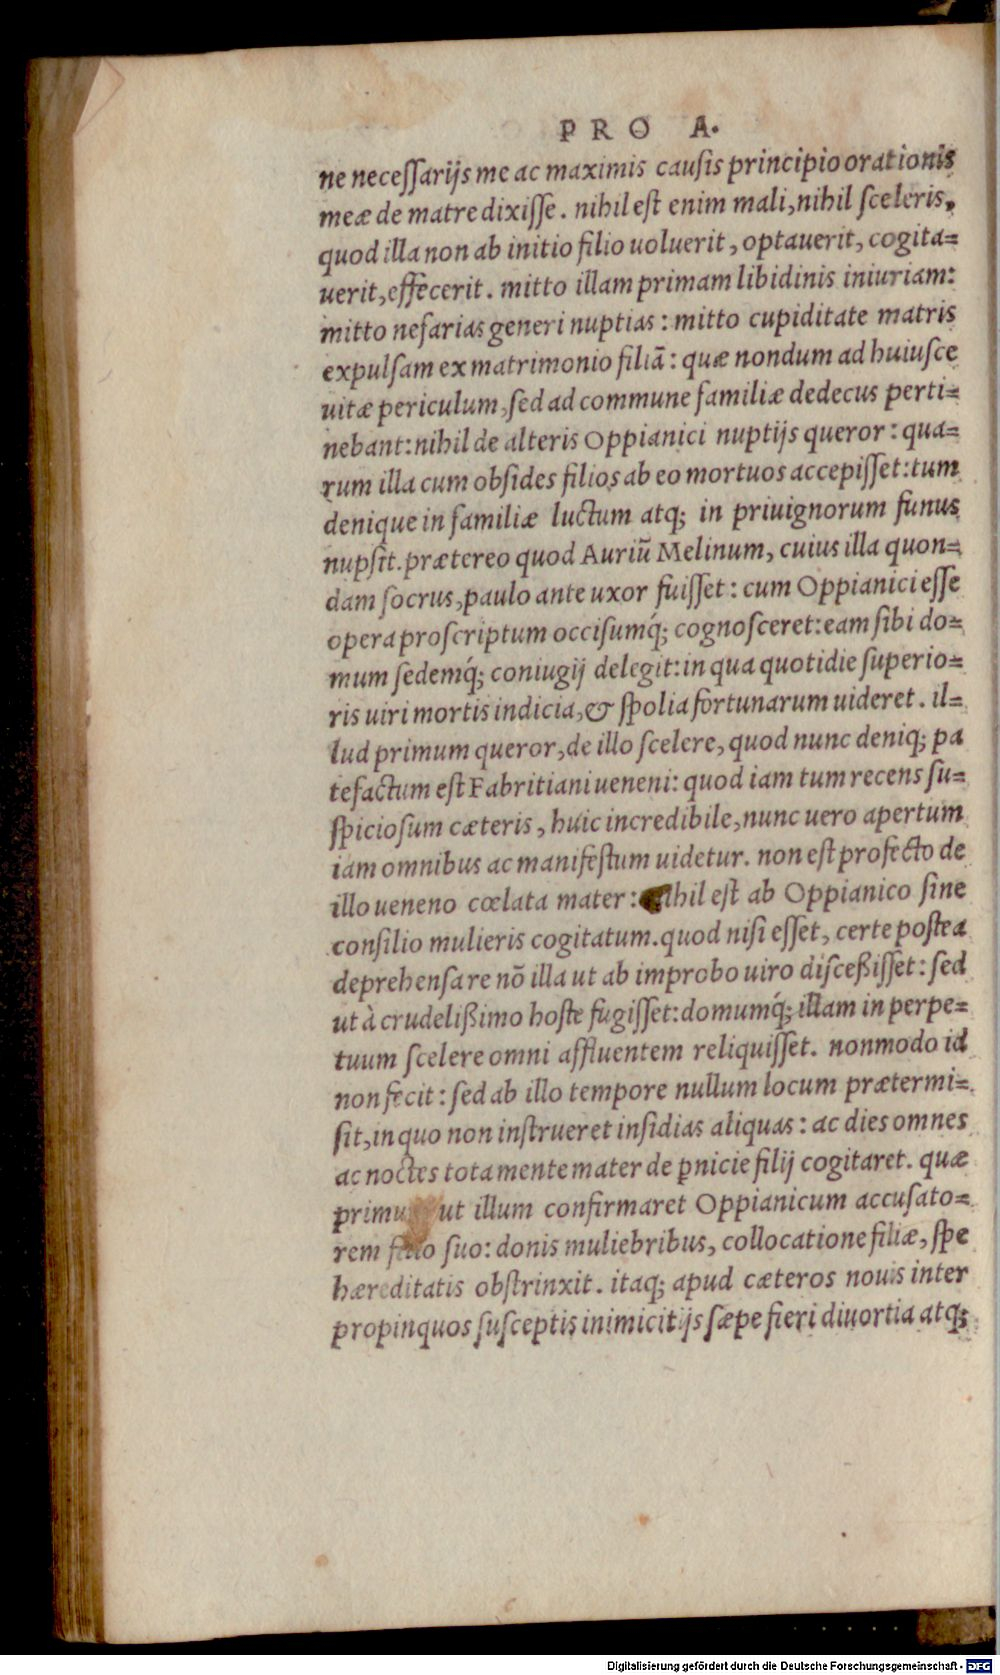 PRO A.
ne neceſſarijs me ac maximis cauſis principio orationis
meæ de matre dixiſſe. nihil eſt enim mali, nihil ſceleris,
quod illa non ab initio filio uoluerit, optauerit, cogita=
uerit, effecerit. mitto illam primam libidinis iniuriam:
mitto nefarias generi nuptias: mitto cupiditate matris
expulſam ex matrimonio filiā: quæ nondum ad huiuſce
uitæ periculum, ſed ad commune familiæ dedecus perti=
nebant: nihil de alteris Oppianici nuptijs queror: qua=
rum illa cum obſides filios ab eo mortuos accepiſſet: tum
denique in familiæ luctum atq; in priuignorum funus
nupſit. prætereo quod Auriū Melinum, cuius illa quon=
dam ſocrus, paulo ante uxor fuiſſet: cum Oppianici eſſe
opera proſcriptum occiſumq́; cognoſceret: eam ſibi do=
mum ſedemq́; coniugij delegit: in qua quotidie ſuperio=
ris uiri mortis indicia, & ſpolia fortunarum uideret. il=
lud primum queror, de illo ſcelere, quod nunc deniq; pa
tefactum eſt Fabritiani ueneni: quod iam tum recens ſu=
ſpicioſum cæteris, huic incredibile, nunc uero apertum
iam omnibus ac manifeſtum uidetur. non eſt profecto de
illo ueneno cœlata mater: nihil eſt ab Oppianico ſine
conſilio mulieris cogitatum. quod niſi eſſet, certe poſtea
deprehenſa re nō illa ut ab improbo uiro diſceßiſſet: ſed
ut à crudelißimo hoſte fugiſſet: domumq́; illam in perpe=
tuum ſcelere omni affluentem reliquiſſet. nonmodo id
non fecit: ſed ab illo tempore nullum locum prætermi=
ſit, in quo non inſtrueret inſidias aliquas: ac dies omnes
ac noctes tota mente mater de ꝑnicie filij cogitaret. quæ
primum ut illum confirmaret Oppianicum accuſato=
rem filio ſuo: donis muliebribus, collocatione filiæ, ſpe
hæreditatis obſtrinxit. itaq; apud cæteros nouis inter
propinquos ſuſceptis inimicitijs ſæpe fieri diuortia atq;
Digitalisierung gefördert durch die Deutsche Forschungsgemeinschaft - DFG